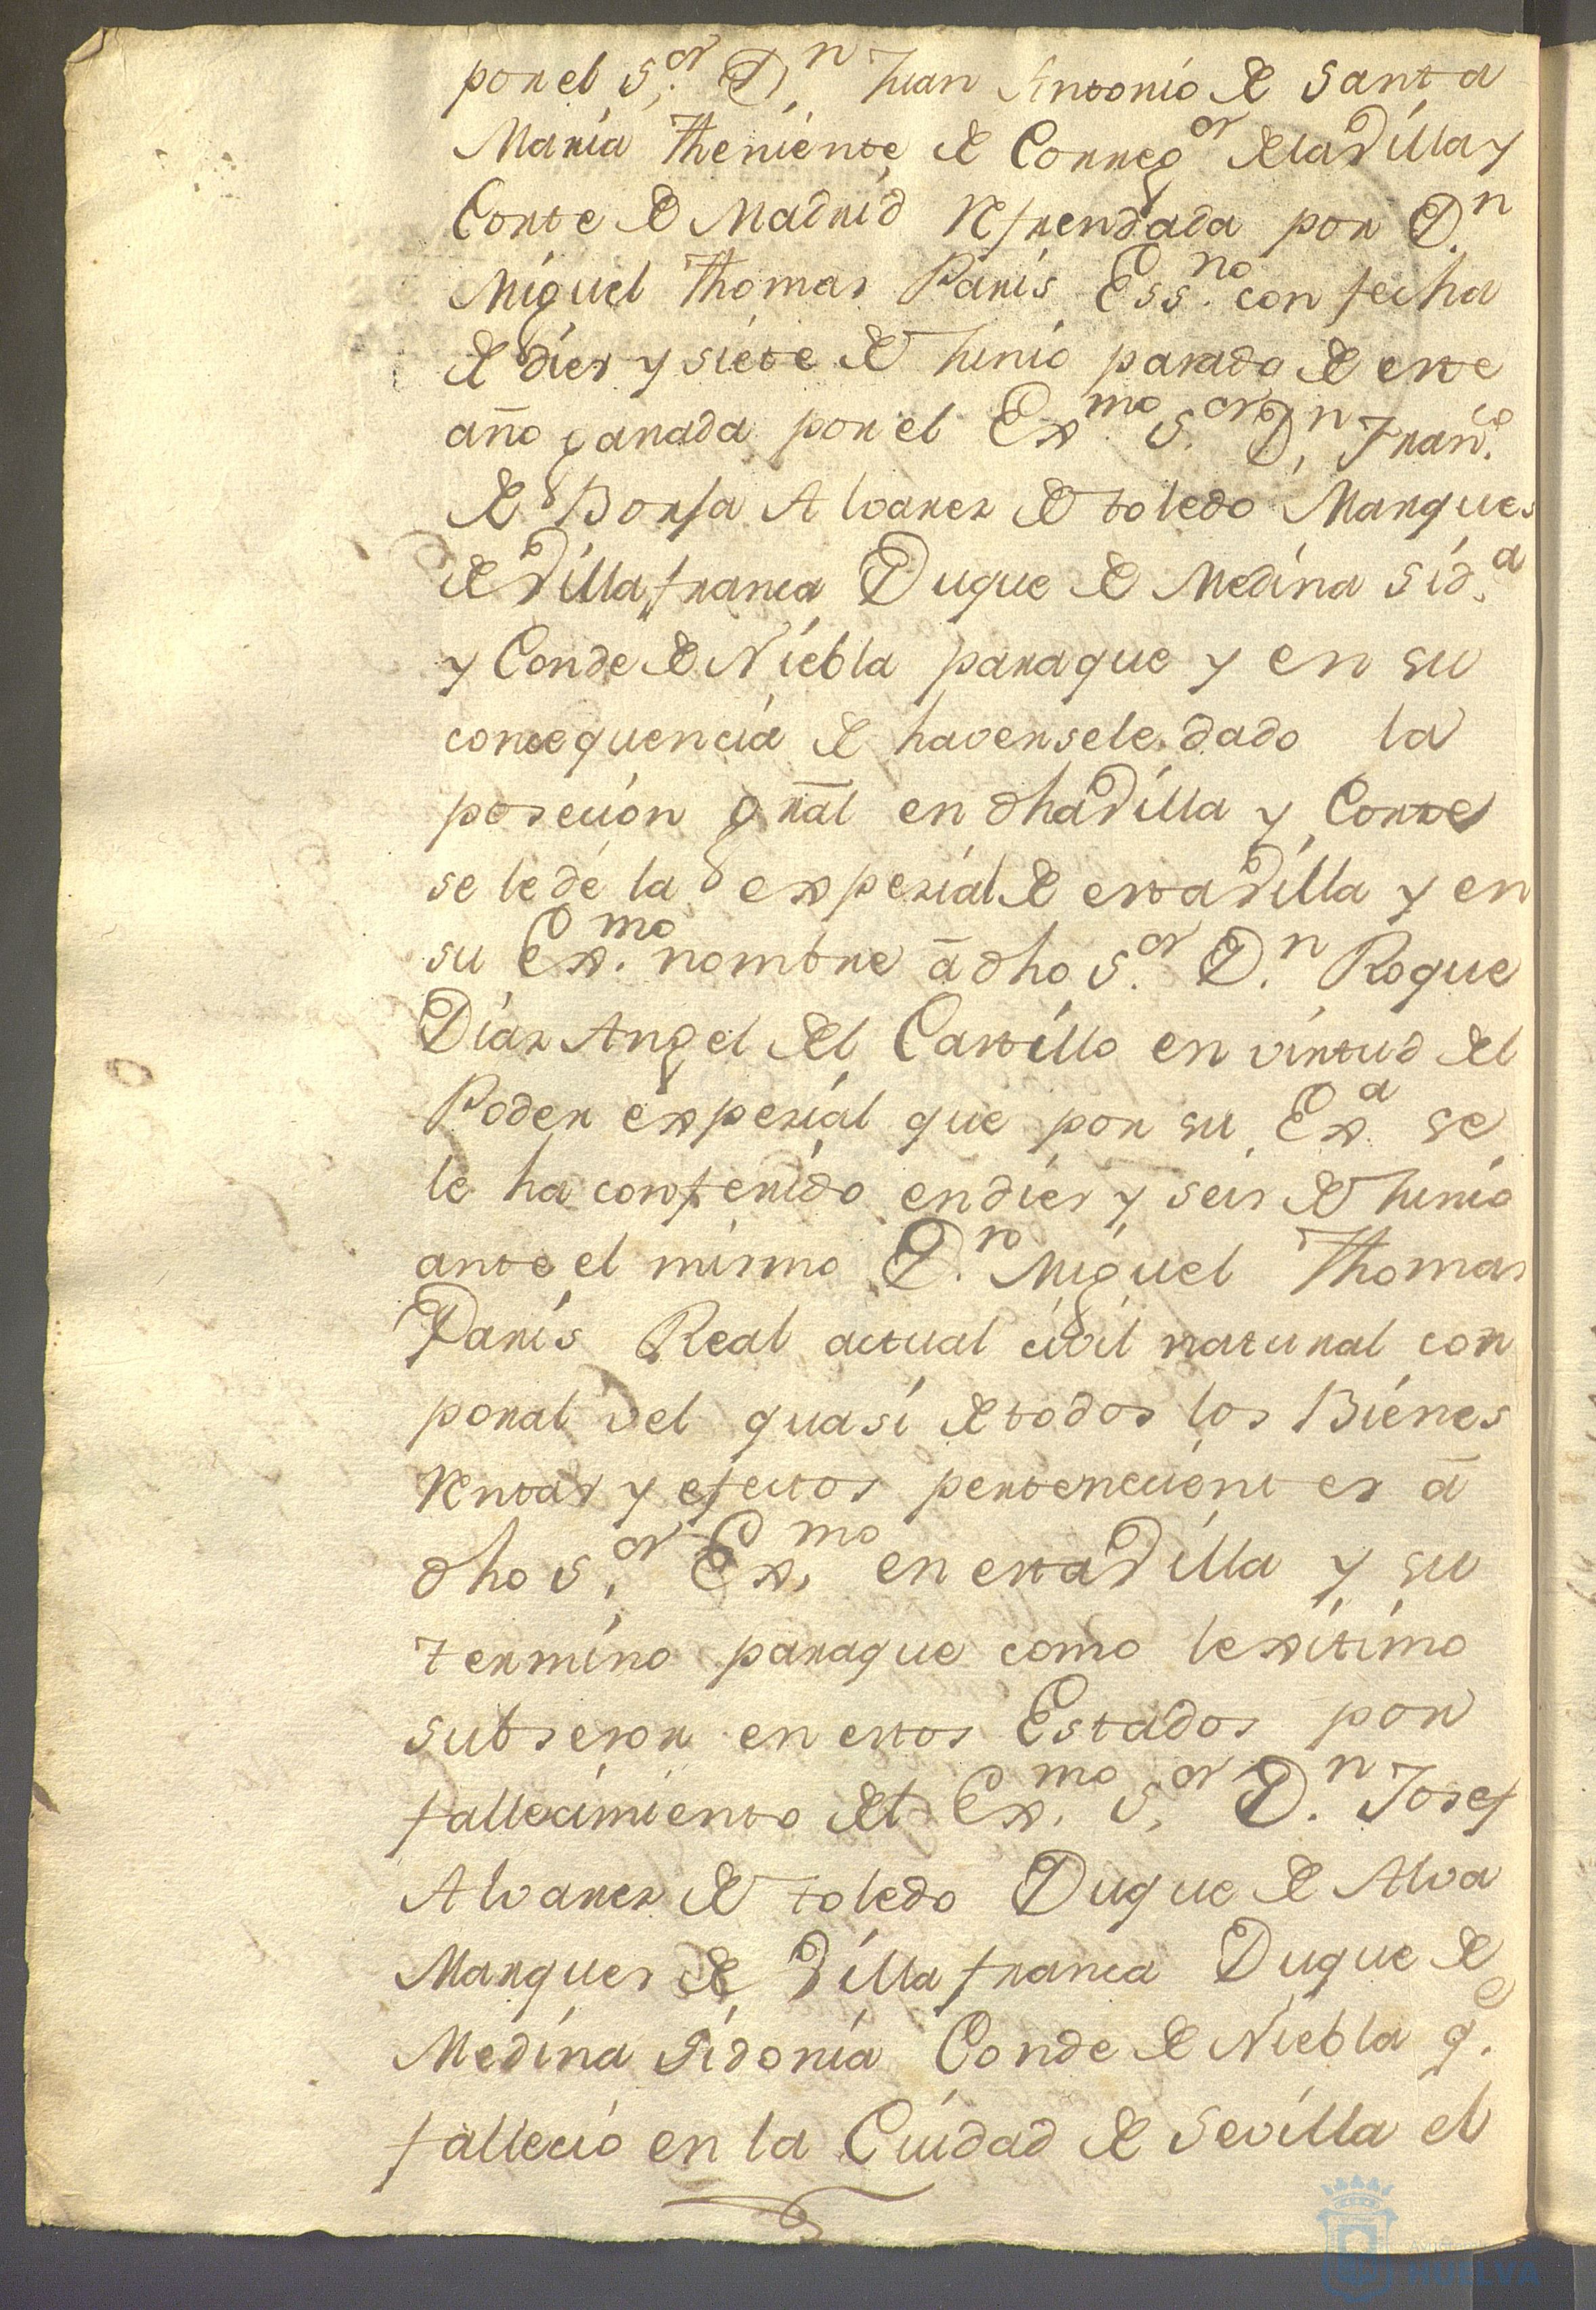 por el S.or D.n Juan Antonio de Santa
Maria Theniente de Correg.or de la Villa y
Corte de Madrid Refrendada por D.n
Miguel Thomas Paris Ess.no con fecha
de diez y siete de Junio pasado de este
año ganada por el Ex.mo S.or D.n Fran.co
de Borja Alvarez de toledo Marques
de Villafranca Duque de Medina Sid.a
y Conde de Niebla paraque y en su
consequencia de haversele dado la
posecion gral en dha Villa y Corte
se le dé la expezial de esta Villa y en
su Ex.mo nombre â dho S.or D.n Roque
Diaz Angel del Castillo en virtud del
Poder expezial que por su Ex.a se
le ha conferido en diez y seis de Junio
ante el mismo D.n Miguel Thomas
Paris Real actual civil natural cor
poral vel quasi de todos los Bienes
Rentas y efectos pertenecientes â
dho S.or Ex.mo en esta Villa y su
termino paraque como lexitimo
subsesor en estos Estados por
fallecimiento del Ex.mo S.or D.n Josef
Alvarez de toledo Duque de Alva
Marques de Villafranca Duque de
Medina Sidonia Conde de Niebla q.e
fallecio en la Ciudad de Sevilla el
HUELVA